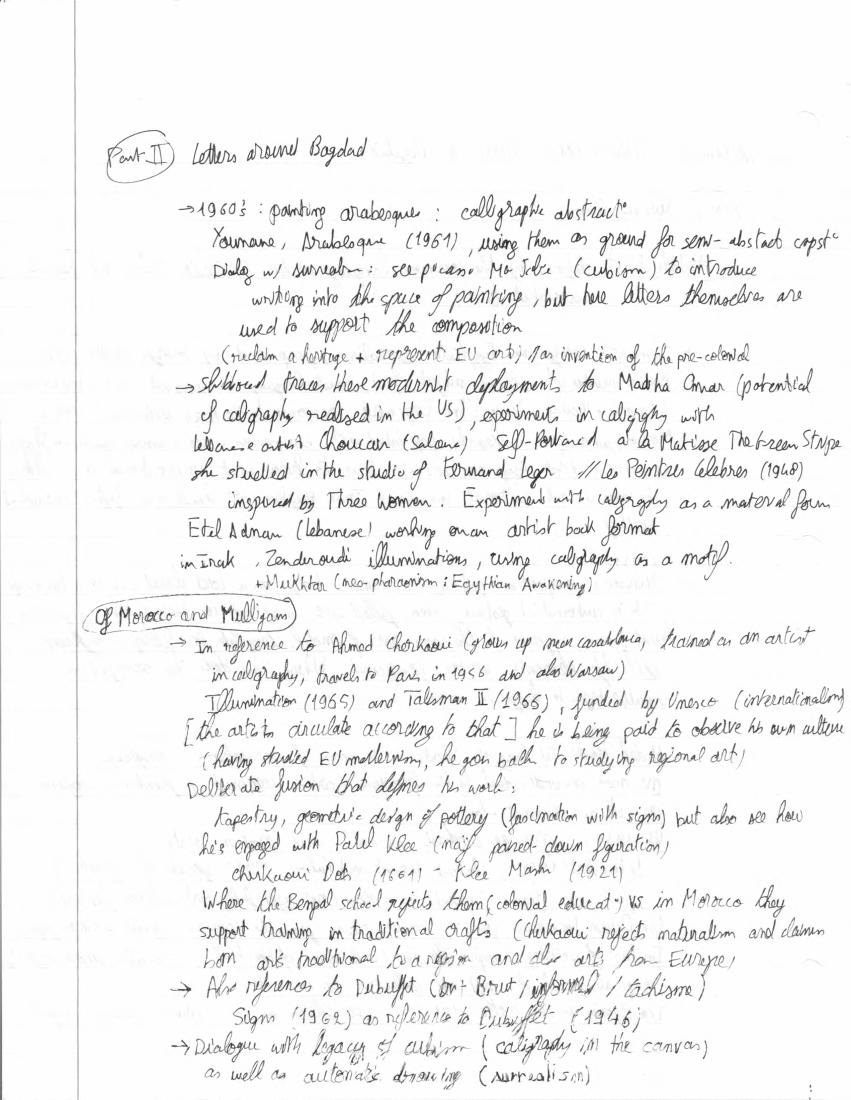 Part II Letters around Bagdad
→ 1960's : painting arabesques : calligraphic abstract°
Younane, Arabesque (1961), using them as ground for semi-abstact
Dialog w/ surrealism : see picasso Ma Jolie (cubism) to introduce
writing into the space of painting, but here letters themselves are
used to support the composition
(reclaim a heritage + represent EU arts) // as invention of the pre-colonial
→ traces these modernist deployments to Madiha Omar (potential
of caligraphy realised in the US), experiments in caligrphy with
lebanese artist Choucair (Salona) Self-Portrait a la Matisse The Green Stripe
she studied in the studio of Fernand Leger // Les Peintres Celebres (1948)
inspired by Three Women. Experiment with caligraphy as a material form
Etel Adnan (lebanese) working on an artist book format
in Irak, Zenderoudi illuminations, using caligraphy as a motif.
+ Mukhtar (neo-pharaonism : Egyptian Awakening)
Of Morocco and Mulligam
→ In reference to Ahmed Cherkaoui (grows up near casablanca, trained as an artist
in caligraphy, travels to Paris in 1956 and also Warsaw)
Illumination (1965) and Talisman II (1966), funded by Unesco (internationalism)
[the artists circulate according to that] he is being paid to observe his own culture
(having studied EU modernism, he goes back to studying regional art)
Deliberate fusion that defines his work :
tapestry, geometric design of pottery (fascination with signs) but also see how
he's engaged with Paul Klee (naïf pared down figuration)
Cherkaoui Dots (1661) - Klee Mask (1921)
Where the Bengal school rejects them (colonial educat°) VS in Morocco they
support training in traditional crafts (cherkaoui rejects materialism and claims
both arts traditional to a region and also arts from Europe)
→ Also references to Dubuffet (Art Brut / informel / tachisme)
Signs (1962) as reference to Dubuffet (1946)
→ Dialogue with legacy of cubism (caligraphy in the canvas)
as well as automatic drawing (surrealism)